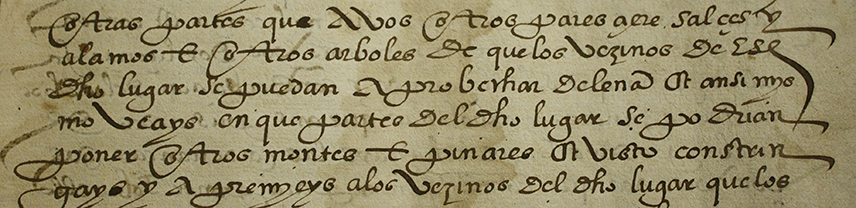 otras partes que A vos otros paresçiere salçes y
alamos E otros arboles de que los vezinos de ese
dho lugar se puedan A probechar de leña Et ansi mys
mo veays en que partes del dho lugar se podrian
poner otros montes E pinares Et visto constrin
gays y A premyeys a los vezinos del dho lugar que los